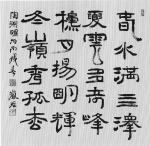 春水滿亖澤
夏雲多奇峰
秋月揚明輝
冬嶺秀孤松
陶淵明句丙戌